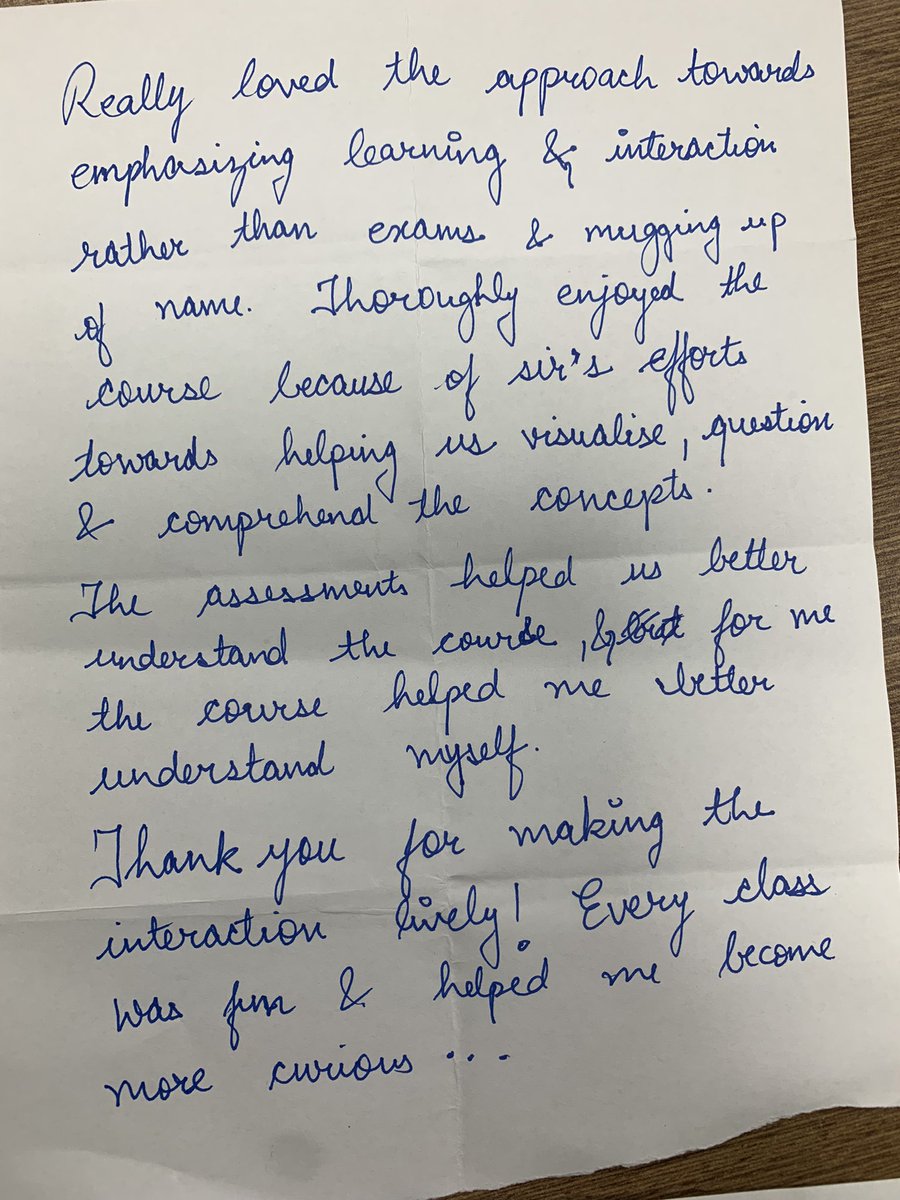 Really loved the approach towards
emphasizing learning & interaction
rather than exams & mugging up
of name. Thoroughly enjoyed the
course because of sir's efforts
towards helping us visualise, question
& comprehend the concepts.
The assessments helped us better
understand the course, & for me
the course helped me better
understand myself.
Thank you for making the
interaction lively! Every class
was fun & helped me become
more curious...